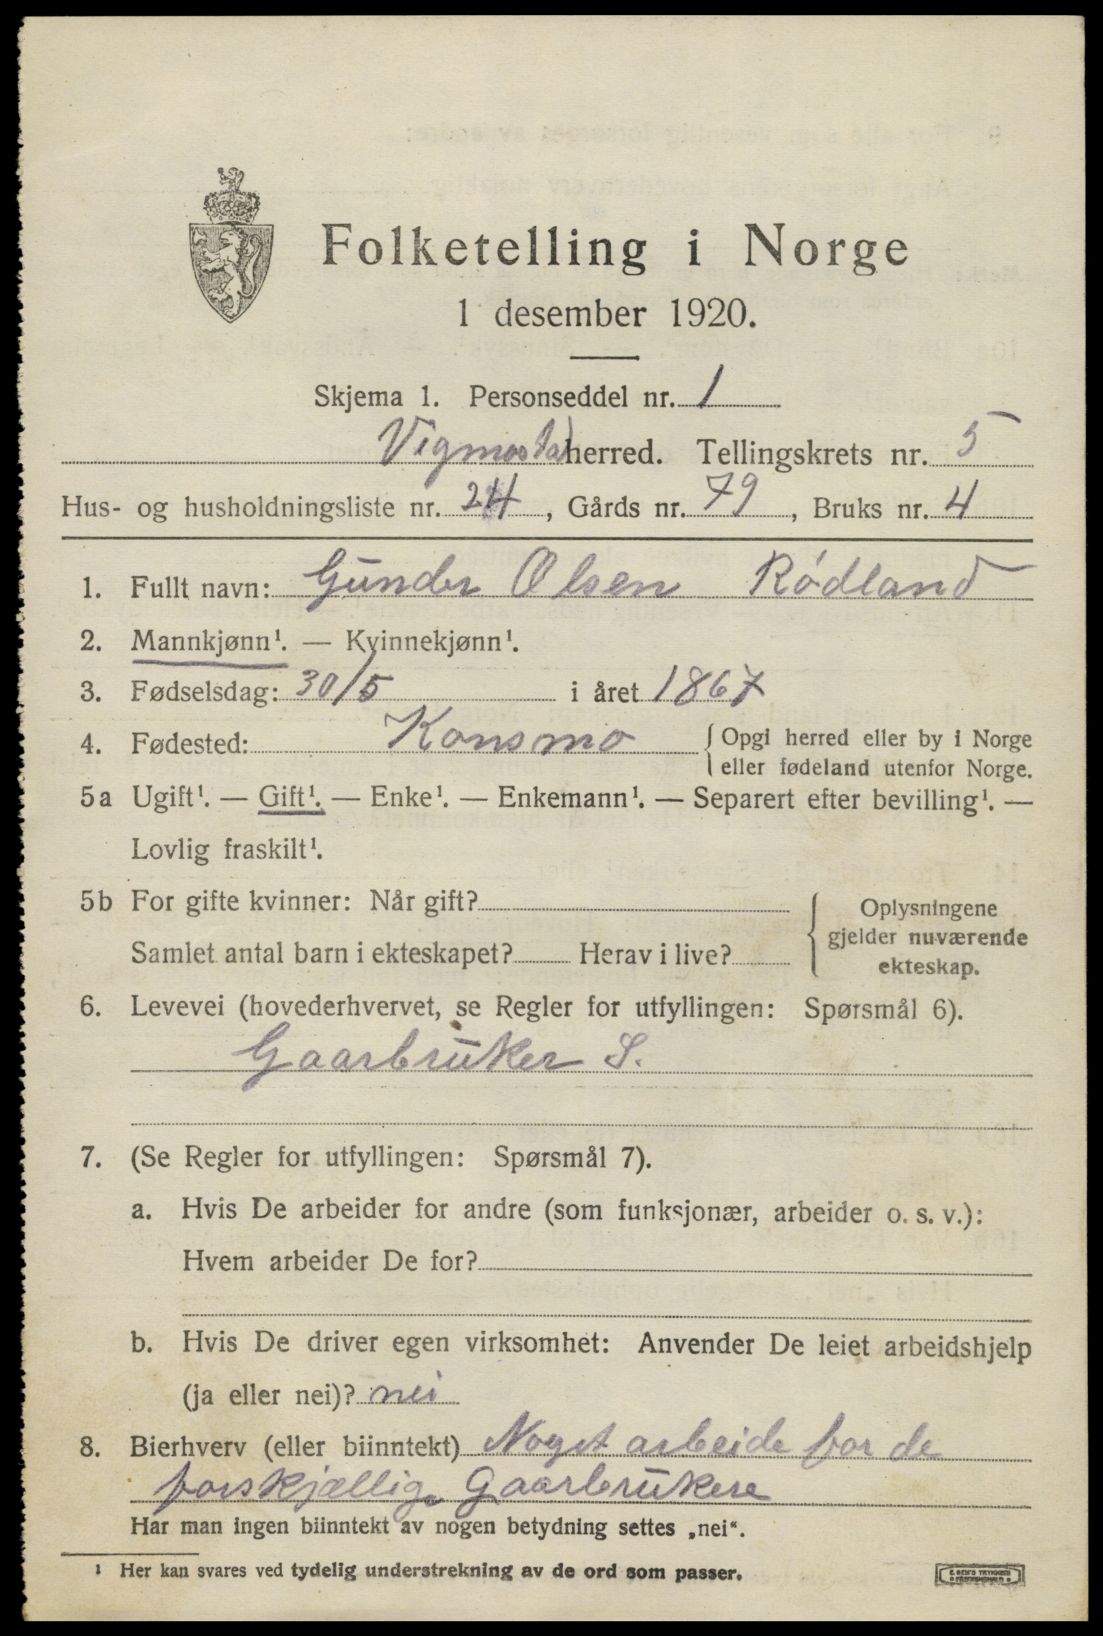 Folketelling i Norge
1 desember 1920.
Skjema 1. Personseddel nr. 1
Vigmostad herred. Tellingskrets nr. 5
Hus- og husholdningsliste nr. 24, Gårds nr. 79, Bruks nr. 4
1. Fullt navn: Gunder Olsen Rødland
2. Mannkjønn¹. — Kvinnekjønn¹.
3. Fødselsdag: 30/5 i året 1867
4. Fødested: Konsmo { Opgi herred eller by i Norge
eller fødeland utenfor Norge.
5a Ugift¹. — Gift¹. — Enke¹. — Enkemann¹. — Separert efter bevilling¹. —
Lovlig fraskilt¹.
5b For gifte kvinner: Når gift?
Samlet antal barn i ekteskapet? Herav i live?
{ Oplysningene
gjelder nuværende
ekteskap.
6. Levevei (hovederhvervet, se Regler for utfyllingen: Spørsmål 6).
Gaarbruker S.
7. (Se Regler for utfyllingen: Spørsmål 7).
a. Hvis De arbeider for andre (som funksjonær, arbeider o. s. v.):
Hvem arbeider De for?
b. Hvis De driver egen virksomhet: Anvender De leiet arbeidshjelp
(ja eller nei)? nei
8. Bierhverv (eller biinntekt) Noget arbeide for de
forskjællige Gaarbrukere
Har man ingen biinntekt av nogen betydning settes „nei“.
¹ Her kan svares ved tydelig understrekning av de ord som passer.